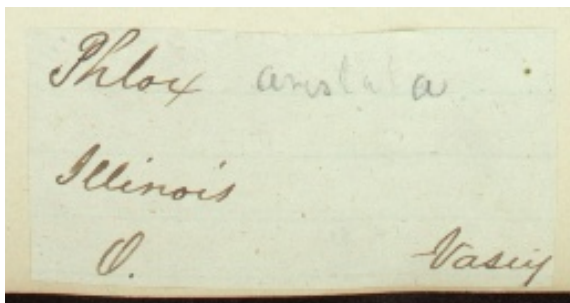 Phlox aristata
Illinois
O. Vasey